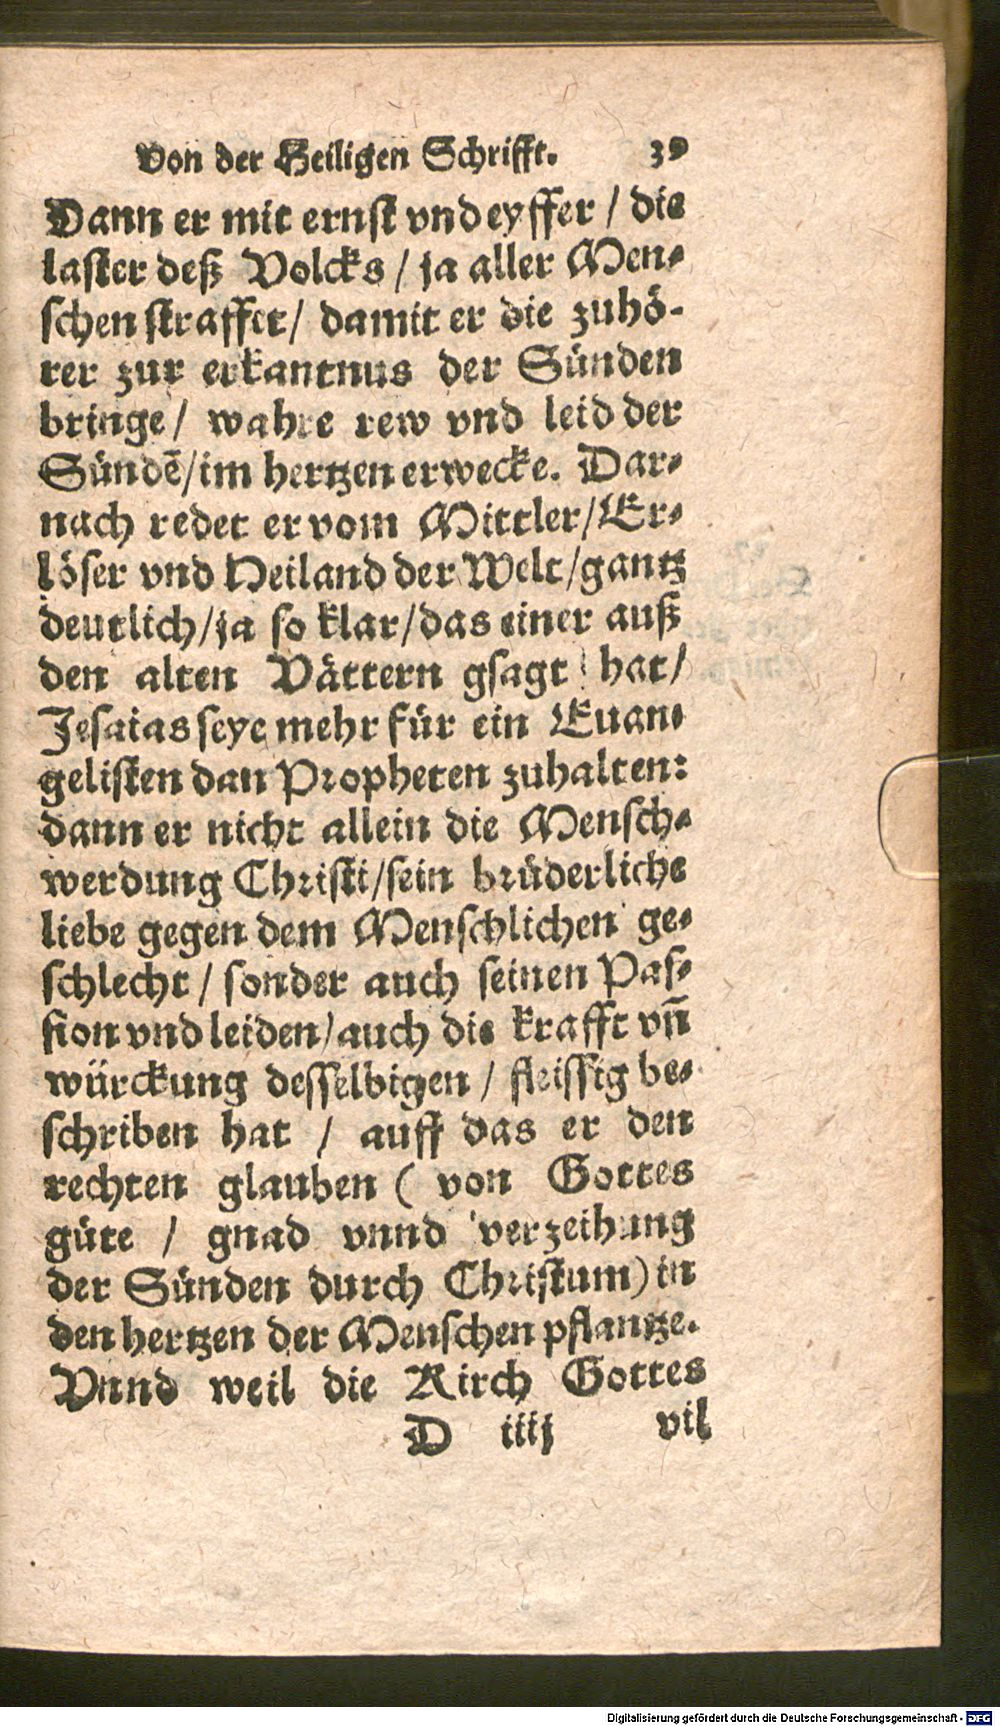 Von der Heiligen Schrifft. 39
Dann er mit ernst vnd eyffer / die
laster deß Volcks / ja aller Men-
schen straffet / damit er die zuhö-
rer zur erkantnus der Sünden
bringe / wahre rew vnd leid der
Sündē / im hertzen erwecke. Dar-
nach redet er vom Mittler / Er-
löser vnd Heiland der Welt / gantz
deutlich / ja so klar / das einer auß
den alten Vättern gsagt hat /
Jesaias seye mehr für ein Euan-
gelisten dan Propheten zuhalten:
dann er nicht allein die Mensch-
werdung Christi / sein brüderliche
liebe gegen dem Menschlichen ge-
schlecht / sonder auch seinen Pas-
sion vnd leiden / auch die krafft vñ
würckung desselbigen / fleissig be-
schriben hat / auff das er den
rechten glauben ( von Gottes
güte / gnad vnnd verzeihung
der Sünden durch Christum ) in
den hertzen der Menschen pflantze.
Vnnd weil die Kirch Gottes
D iiij vil
Digitalisierung gefördert durch die Deutsche Forschungsgemeinschaft - DFG